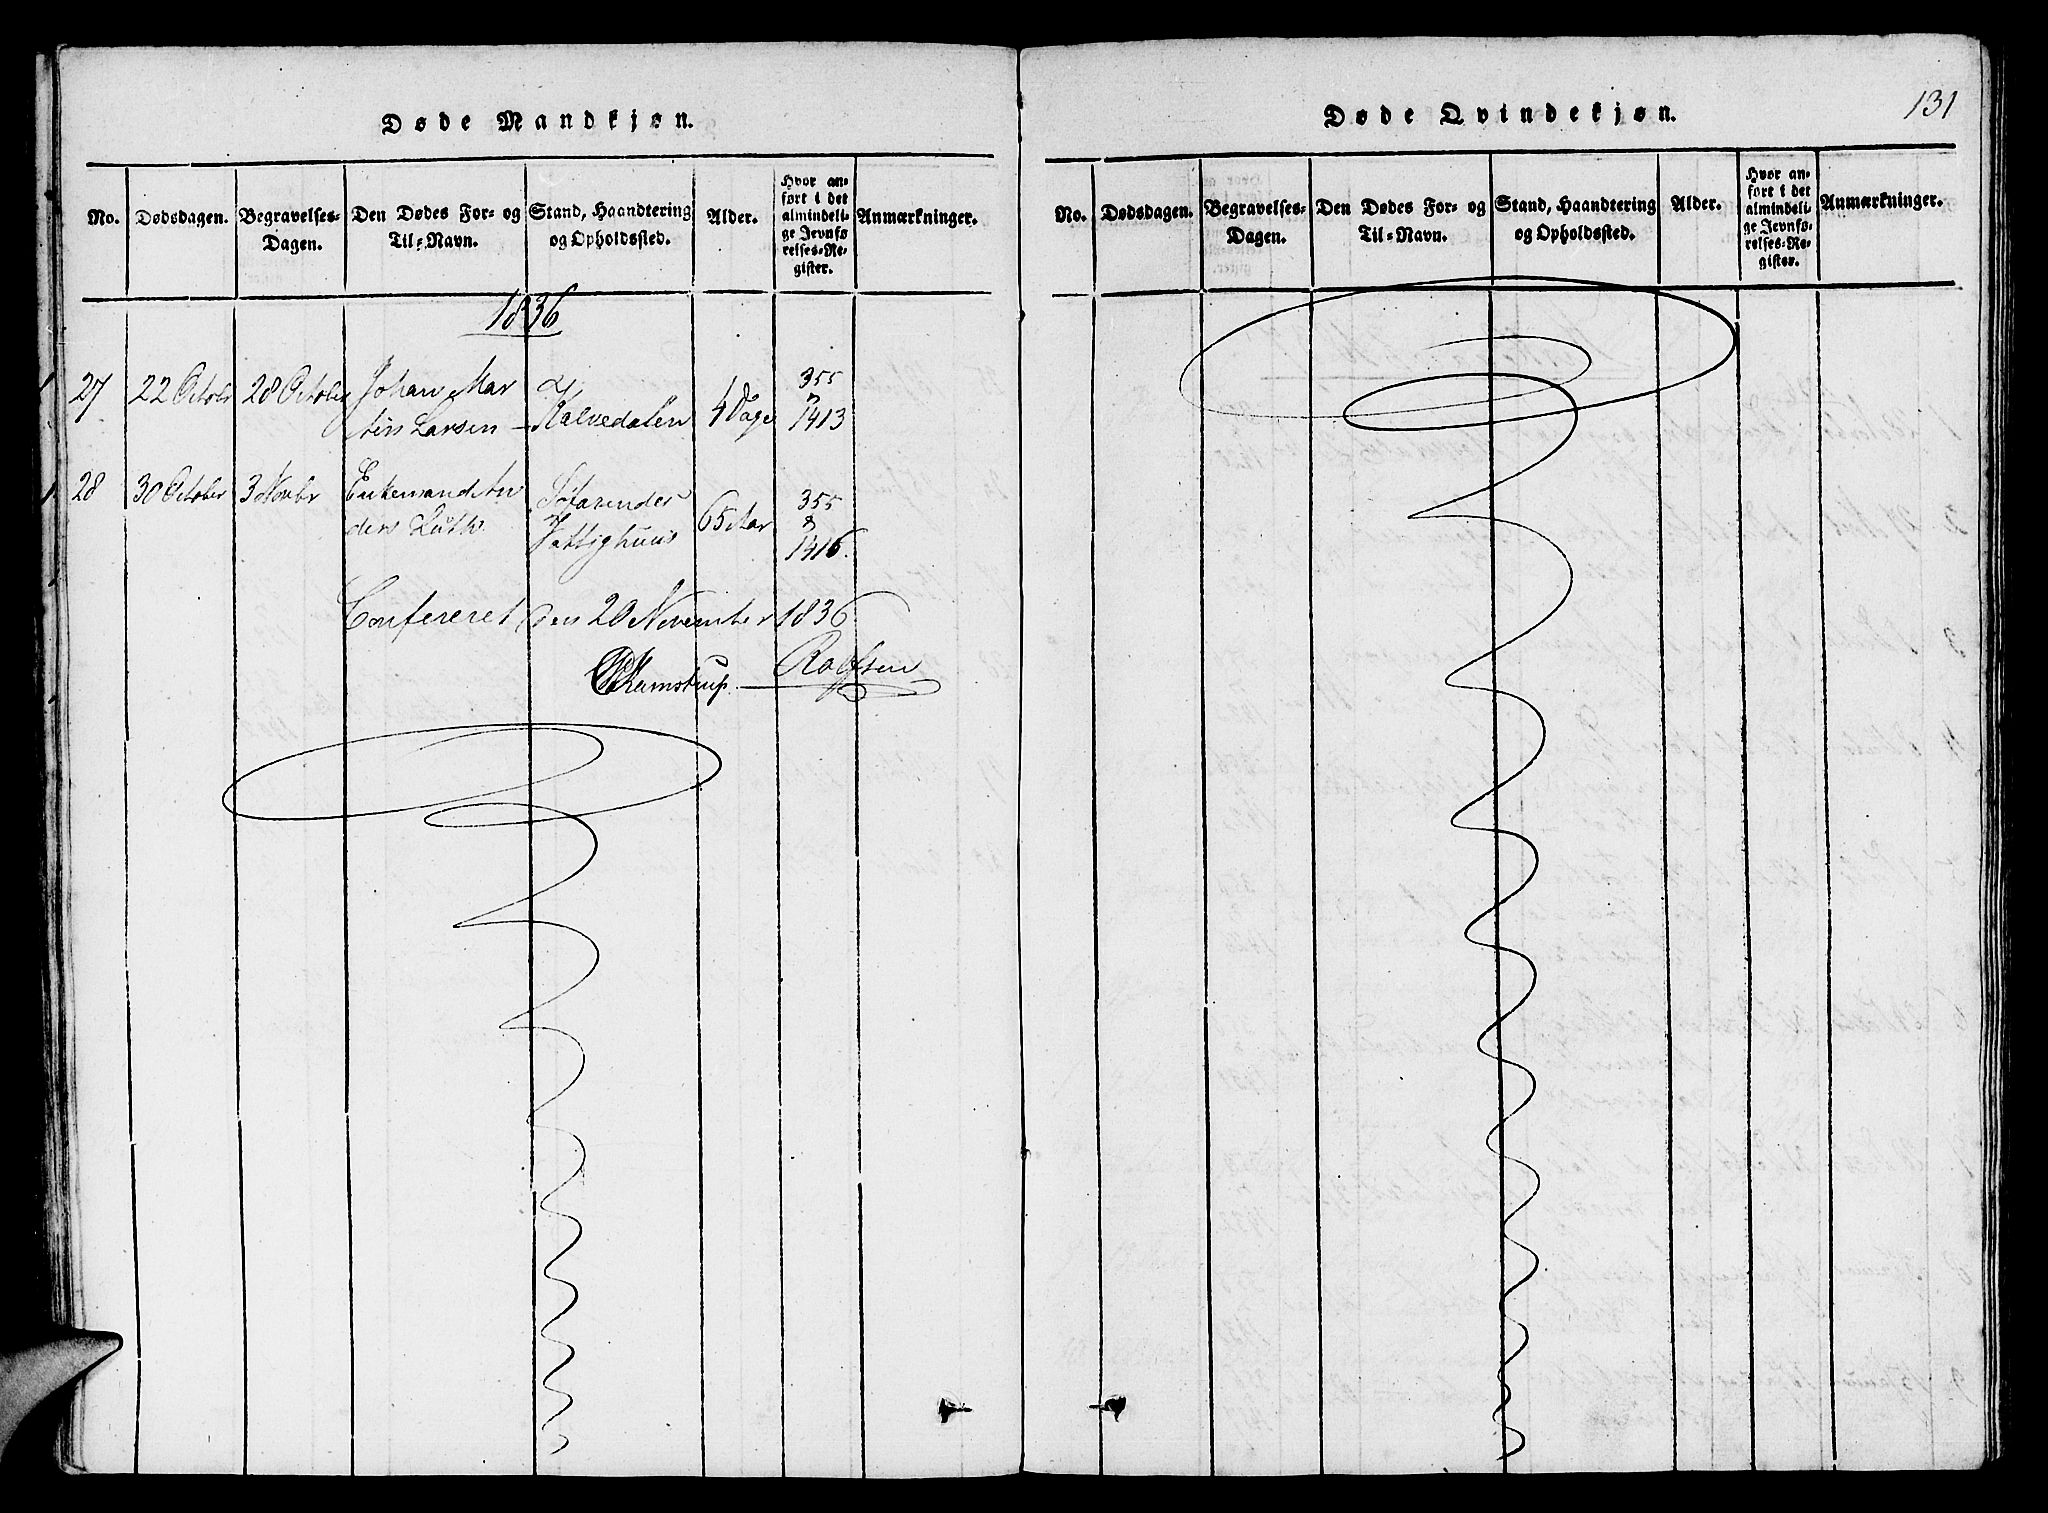 Døde Mandkjøn.
No. Dødsdagen. Begravelses-Dagen. Den Dødes For- og Til-Navn. Stand, Haandtering og Opholdssted. Alder. Hvor anført i det almindelige Jevnførelses-Register. Anmærkninger.
1836
27 22 Octobr 28 October Johan Mar
tin Larsen - Kalvedalen 4 Dage 355 & 1413
28 30 October 3 Novbr Enkemand An
ders Lüth. Søfarende Fattighuus 65 Aar 355 & 1416.
Confereret den 20 November 1836
Ramstrup. Rolfsen
131
Døde Qvindekjøn.
No. Dødsdagen. Begravelses-Dagen. Den Dødes For- og Til-Navn. Stand, Haandtering og Opholdssted. Alder. Hvor anført i det almindelige Jevnførelses-Register. Anmærkninger.